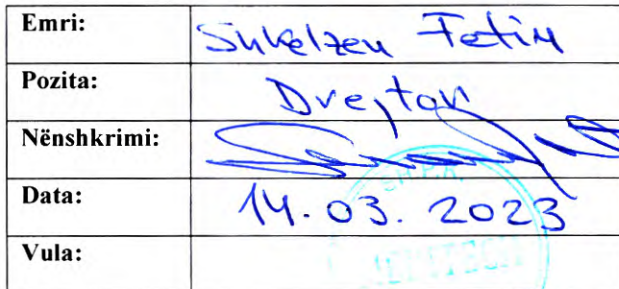 Emri: Shkelzen Fetiu
Pozita: Drejtor
Nënshkrimi:
Data: 14.03.2023
Vula: